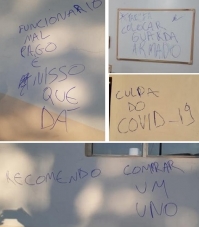 FUNCIONARIO
MAL
PAGO
É
NISSO
QUE
DÁ
COLOCAR
GUARDA
ARMADO
CULPA
DO
COVID-19
RECOMENDO COMPRAR
UM
UNO